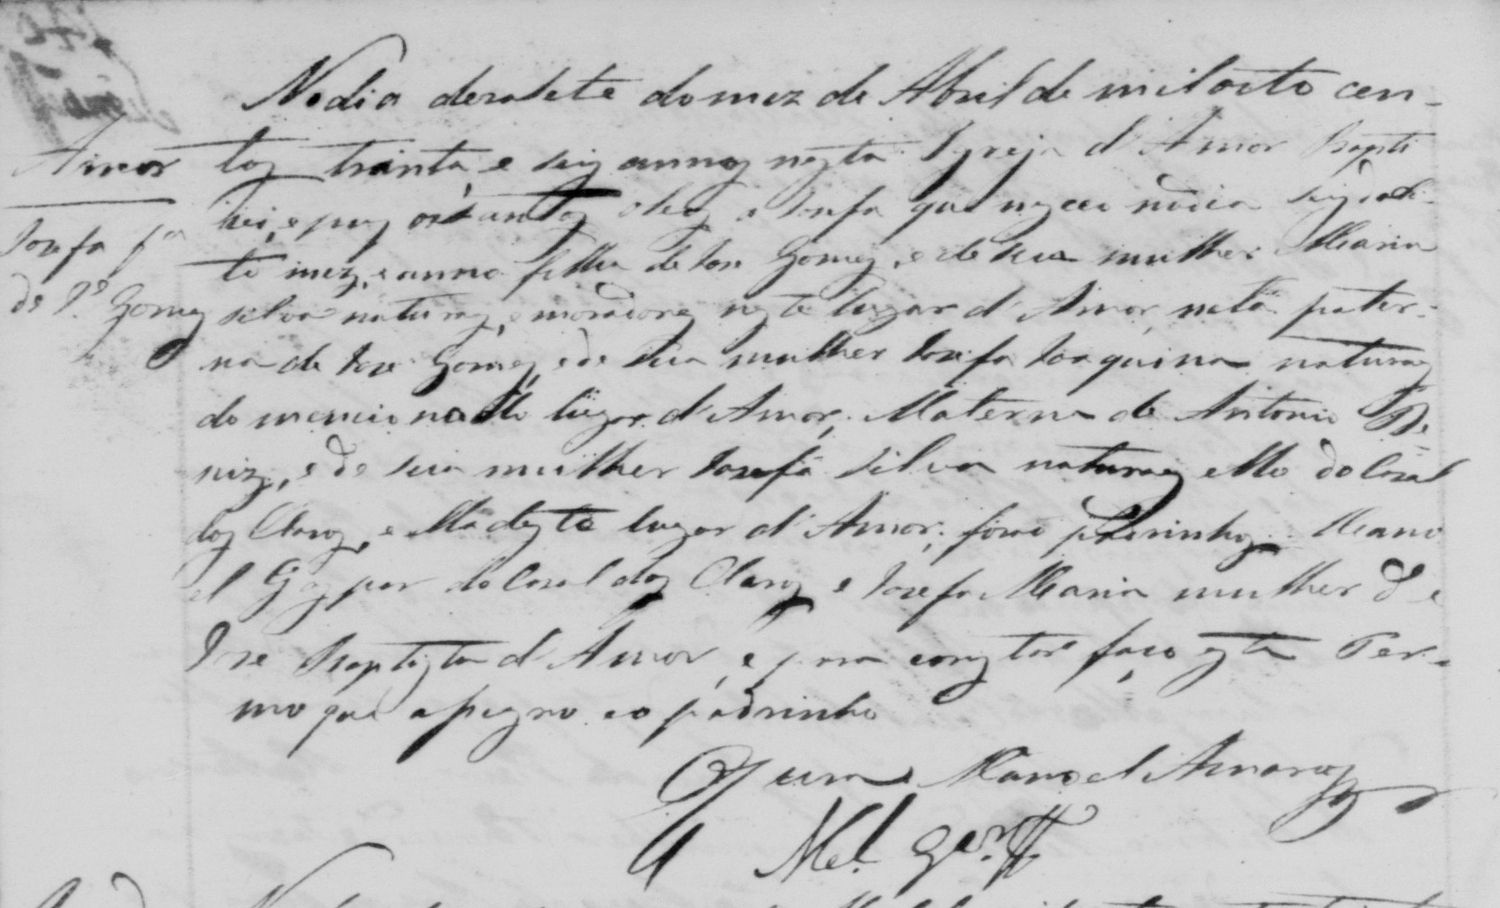 No dia desasete do mez de Abril de mil oito cen-
tos trinta, e seis annos nesta Igreja d'Amor Bapti
zei, e puz os santos oleos a Josefa que nasceo no dia seis do di-
to mez, e anno filha de Jose Gomes, e de sua mulher Maria
silva naturaes, e moradores neste lugar d'Amor, neta pater-
na de Jose Gomes, e de sua mulher Josefa Joaquina naturaes
do mencionado lugar d'Amor, Materna de Antonio De
niz, e de sua mulher Josefa silva naturaes elle do Casal
dos Claros, e Ella deste lugar d'Amor; forão padrinhos Mano
el Gaspar do Casal dos Claros e Josefa Maria mulher de
Jose Baptista d'Amor, e para constar faço este Ter-
mo que assigno e o padrinho
O Cura Manoel Amaro
Mel. Gar.
Amor
Josefa fa
de Je. Gomes